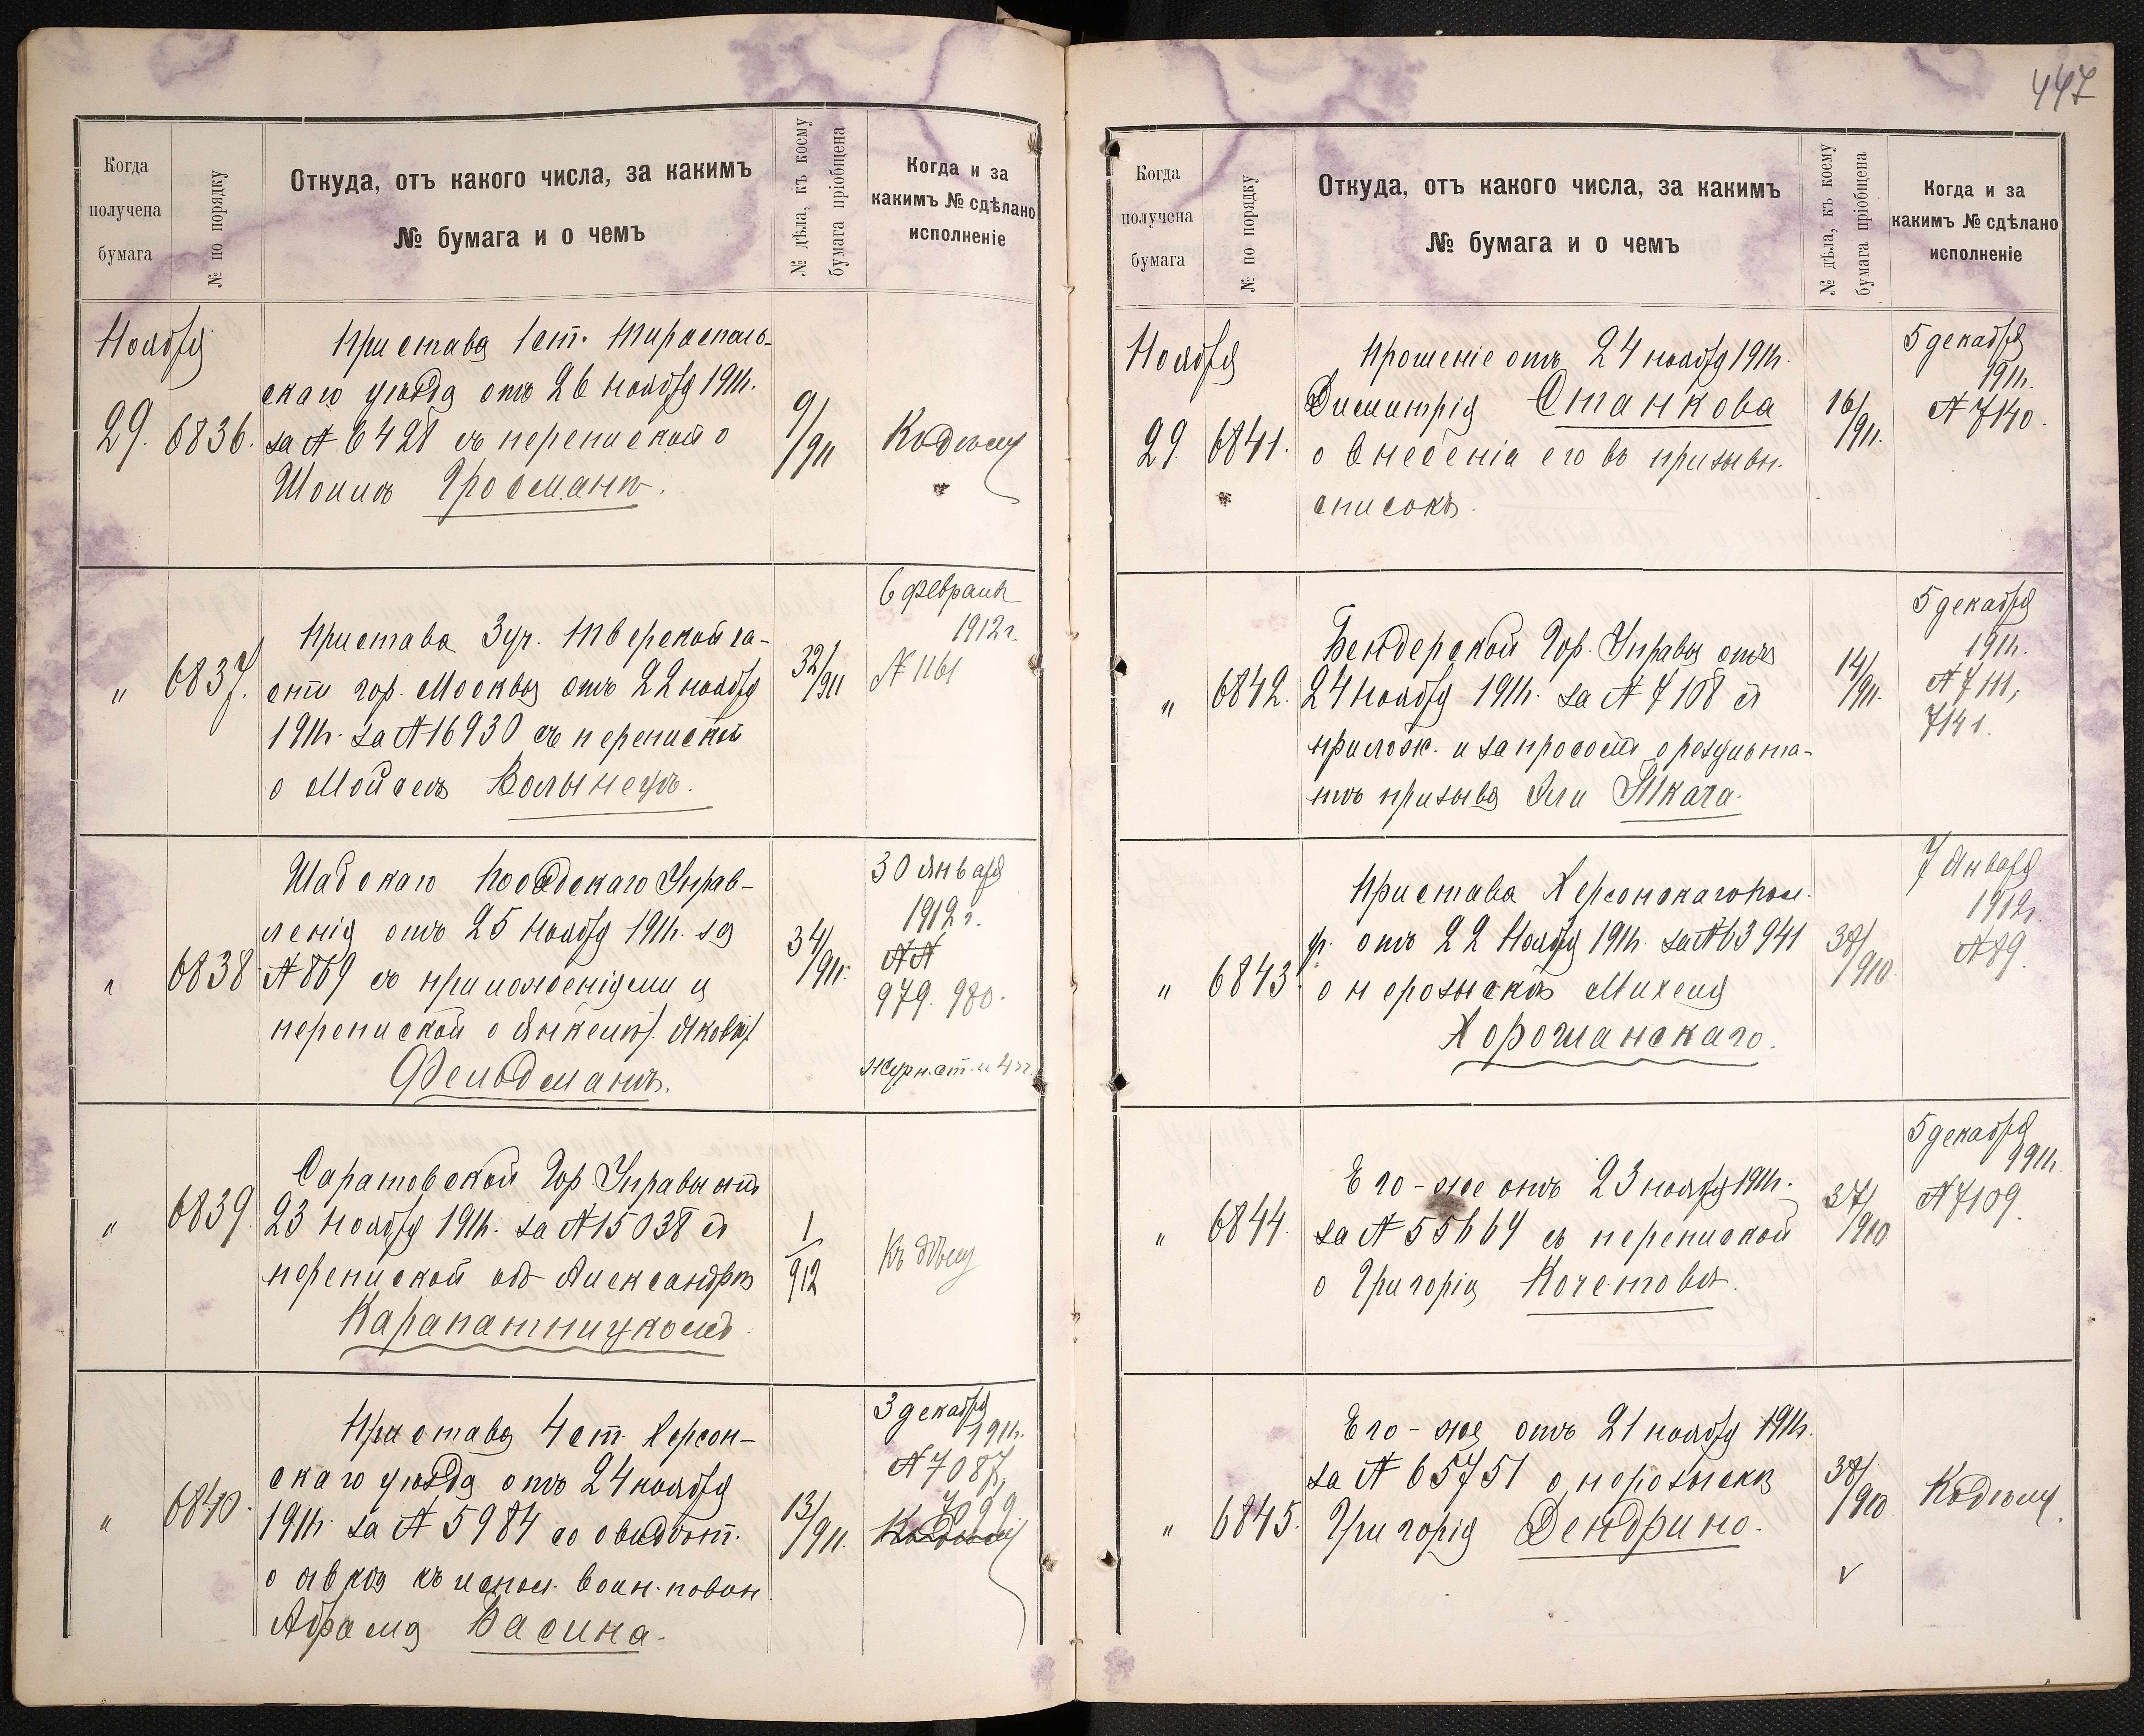 447
Когда
получена
бумага
№ по порядку
Откуда, отъ какого числа, за какимъ
№ бумага и о чемъ
№ дѣла, къ коему
бумага пріобщена
Когда и за
какимъ № сдѣлано
исполненіе
Ноября
29. 6836.
Пристава 1 ст. Тирасполь-
скаго уѣзда отъ 26 ноября 1911г.
за № 6428 съ перепиской о
Гросманъ.
9/911
Къ дѣлу
" 6837.
Пристава 3 уч. Тверской ча-
сти гор. Москвы отъ 22 ноября
1911г. за № 16930 съ перепиской
о Мойсеѣ Волынецъ.
32/911
6 февраля
1912 г.
№ 1161
" 6838
Шабскаго Посадскаго Управ-
ленія отъ 25 ноября 1911г. за
№ 869 съ приложеніями и
перепиской о Янкелѣ/Яковѣ/
Фельдманъ.
34/911г.
30 января
1912 г.
№№
979. 980.
журн. ст.
" 6839
Саратовской Гор. Управы отъ
23 ноября 1911г. за № 15038 съ
перепиской объ Александрѣ
Карапатницкомъ.
1/912
Къ дѣлу
" 6840.
Пристава 4 ст. Херсон-
скаго уѣзда отъ 24 ноября
1911г. за № 5984 со свидѣт.
о явкѣ къ испол. воин. повин
Абрама Васина.
13/911.
3 декабря
1911г.
№ 7087,
7099
Къ дѣлу
Когда
получена
бумага
№ по порядку
Откуда, отъ какого числа, за какимъ
№ бумага и о чемъ
№ дѣла, къ коему
бумага пріобщена
Когда и за
какимъ № сдѣлано
исполненіе
Ноября
29. 6841.
Прошеніе отъ 24 ноября 1911г.
Димитрія Станкова
о внесеніи его въ призывн.
списокъ.
16/911.
5 декабря
1911г.
№ 7140.
" 6842.
Бендерской Гор. Управы отъ
24 ноября 1911г. за № 7108 съ
прилож. и запросомъ о результа-
тѣ призыва Эли Ткача.
14/911.
5 декабря
1911г.
№ 7111,
7141.
" 6843.
Пристава Херсонскаго пол.
уч. отъ 22 Ноября 1911г. за № 63941
о нерозыскѣ Михеля
Хорошанскаго.
38/910
7 Января
1912г.
№ 89.
" 6844.
Его-же отъ 23 ноября 1911г.
за № 55664 съ перепиской
о Григоріи Кочетовѣ.
37/910
5 декабря
1911г.
№ 7109.
" 6845.
Его-же отъ 21 ноября 1911г.
за № 65751 о нерозыскѣ
Григорія Дендрино.
38/910
Къ дѣлу.